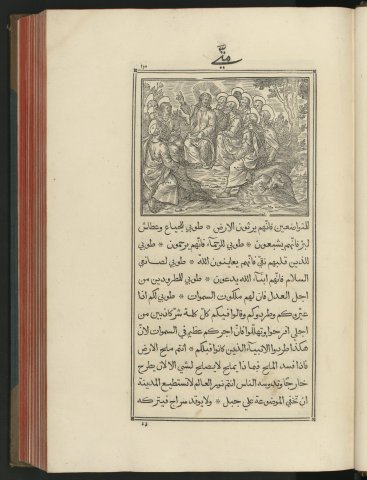 متي
للمتواضعين فانهم يرثون الارض * طوبي للجياع وعطاش
لبرّ فانهم يشبعون * طوبي للرحماء فانهم يرحمون * طوبي
للذين قلبهم نقيّ فانهم يعاينون الله * طوبي لصانعي
السلام فانهم ابناء الله يدعون * طوبي للطرودين من
اجل العدل فان لهم ملكوت السموات * طوبي لكم اذا
عيّروكم وطردوكم وقالوا فيكم كلّ كلمة شرّ كاذبين من
اجلي افرحوا وتهللوا فانّ اجركم عظيم في السموات لانّ
هكذا طردوا الانبياء الذين كانوا قبلكم * انتم ملح الارض
فاذا فسد الملح فبماذا يملح لا يصلح لشي الا لان يطرح
خارجًا وتدوسه الناس انتم نور العالم لا تستطيع المدينة
ان تخفي الموضوعة علي جبل * ولا يوقد سراج فيتركه